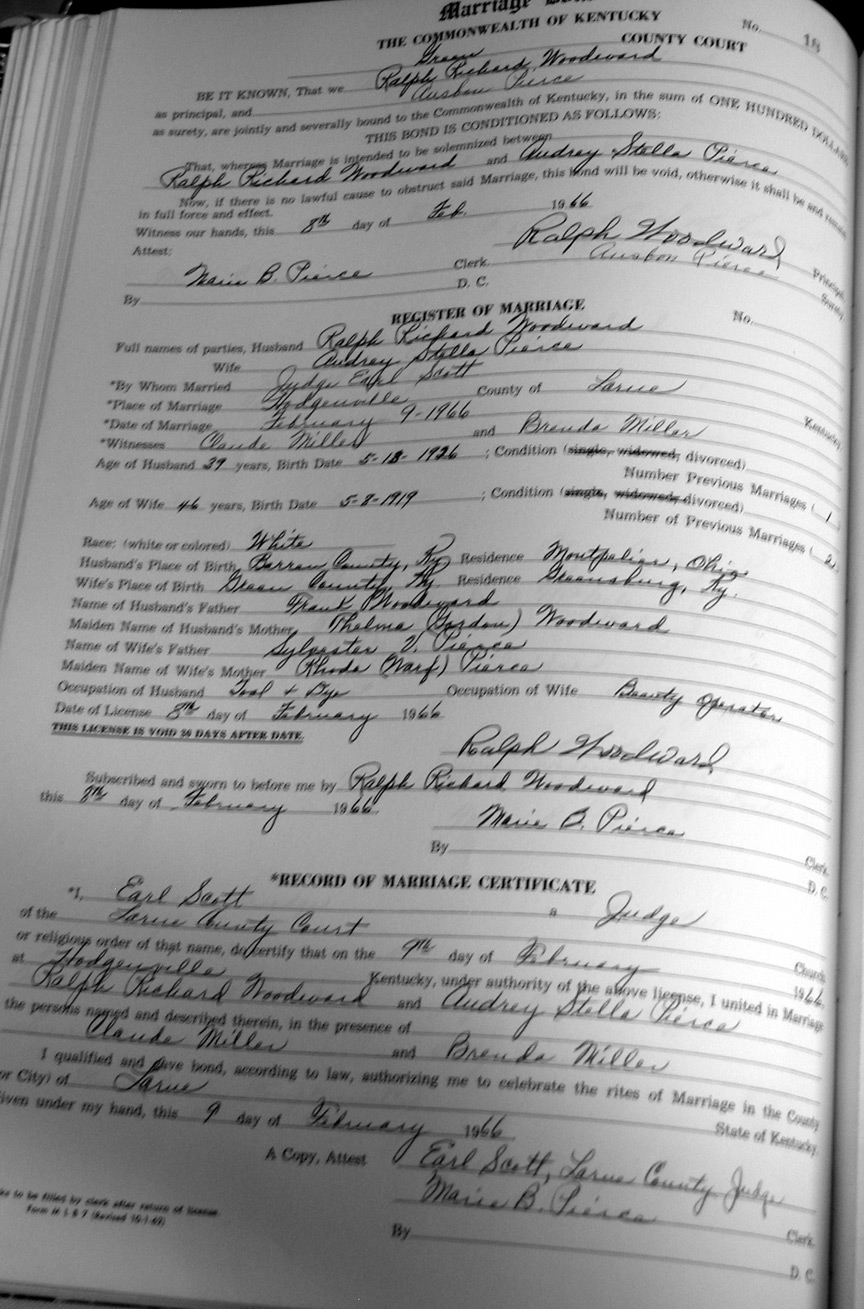 Marriage
THE COMMONWEALTH OF KENTUCKY No. 18
Green COUNTY COURT
BE IT KNOWN, That we Ralph Richard Woodward
as principal, and Ausbon Pierce
as surety, are jointly and severally bound to the Commonwealth of Kentucky, in the sum of ONE HUNDRED DOLLARS
THIS BOND IS CONDITIONED AS FOLLOWS:
That, whereas Marriage is intended to be solemnized between
Ralph Richard Woodward and Audrey Stella Pierce
Now, if there is no lawful cause to obstruct said Marriage, this bond will be void, otherwise it shall be and remain
in full force and effect.
Witness our hands, this 8th day of Feb. 1966
Ralph Woodward Principal
Attest: Ausbon Pierce Surety
Marie B. Pierce Clerk.
By D. C.
REGISTER OF MARRIAGE No.
Full names of parties, Husband Ralph Richard Woodward
Wife Audrey Stella Pierce
*By Whom Married Judge Earl Scott
*Place of Marriage Hodgenville County of Larue Kentucky
*Date of Marriage February 9-1966
*Witnesses Claude Miller and Brenda Miller
Age of Husband 39 years, Birth Date 5-18-1926 ; Condition (single, widowed, divorced)
Number Previous Marriages ( 1
Age of Wife 46 years, Birth Date 5-8-1919 ; Condition (single, widowed, divorced)
Number of Previous Marriages ( 2
Race: (white or colored) White
Husband's Place of Birth Barren County, Ky Residence Montpelier, Ohio
Wife's Place of Birth Green County, Ky. Residence Greensburg, Ky.
Name of Husband's Father Frank Woodward
Maiden Name of Husband's Mother Thelma (Gordon) Woodward
Name of Wife's Father Sylvester V. Pierce
Maiden Name of Wife's Mother Rhoda (Warf) Pierce
Occupation of Husband Tool + Dye Occupation of Wife Beauty Operator
Date of License 8th day of February 1966
THIS LICENSE IS VOID 30 DAYS AFTER DATE.
Ralph Woodward
Subscribed and sworn to before me by Ralph Richard Woodward
this 8th day of February 1966.
Marie B. Pierce Clerk.
By D. C.
*RECORD OF MARRIAGE CERTIFICATE
*I, Earl Scott a Judge
of the Larue County Court Church
or religious order of that name, do certify that on the 9th day of February 1966,
at Hodgenville Kentucky, under authority of the above license, I united in Marriage
Ralph Richard Woodward and Audrey Stella Pierce
the persons named and described therein, in the presence of
Claude Miller and Brenda Miller
I qualified and gave bond, according to law, authorizing me to celebrate the rites of Marriage in the County
or City) of Larue State of Kentucky
iven under my hand, this 9 day of February 1966
A Copy, Attest Earl Scott, Larue County Judge
Marie B. Pierce Clerk.
By D. C.
to be filled by clerk after return of license.